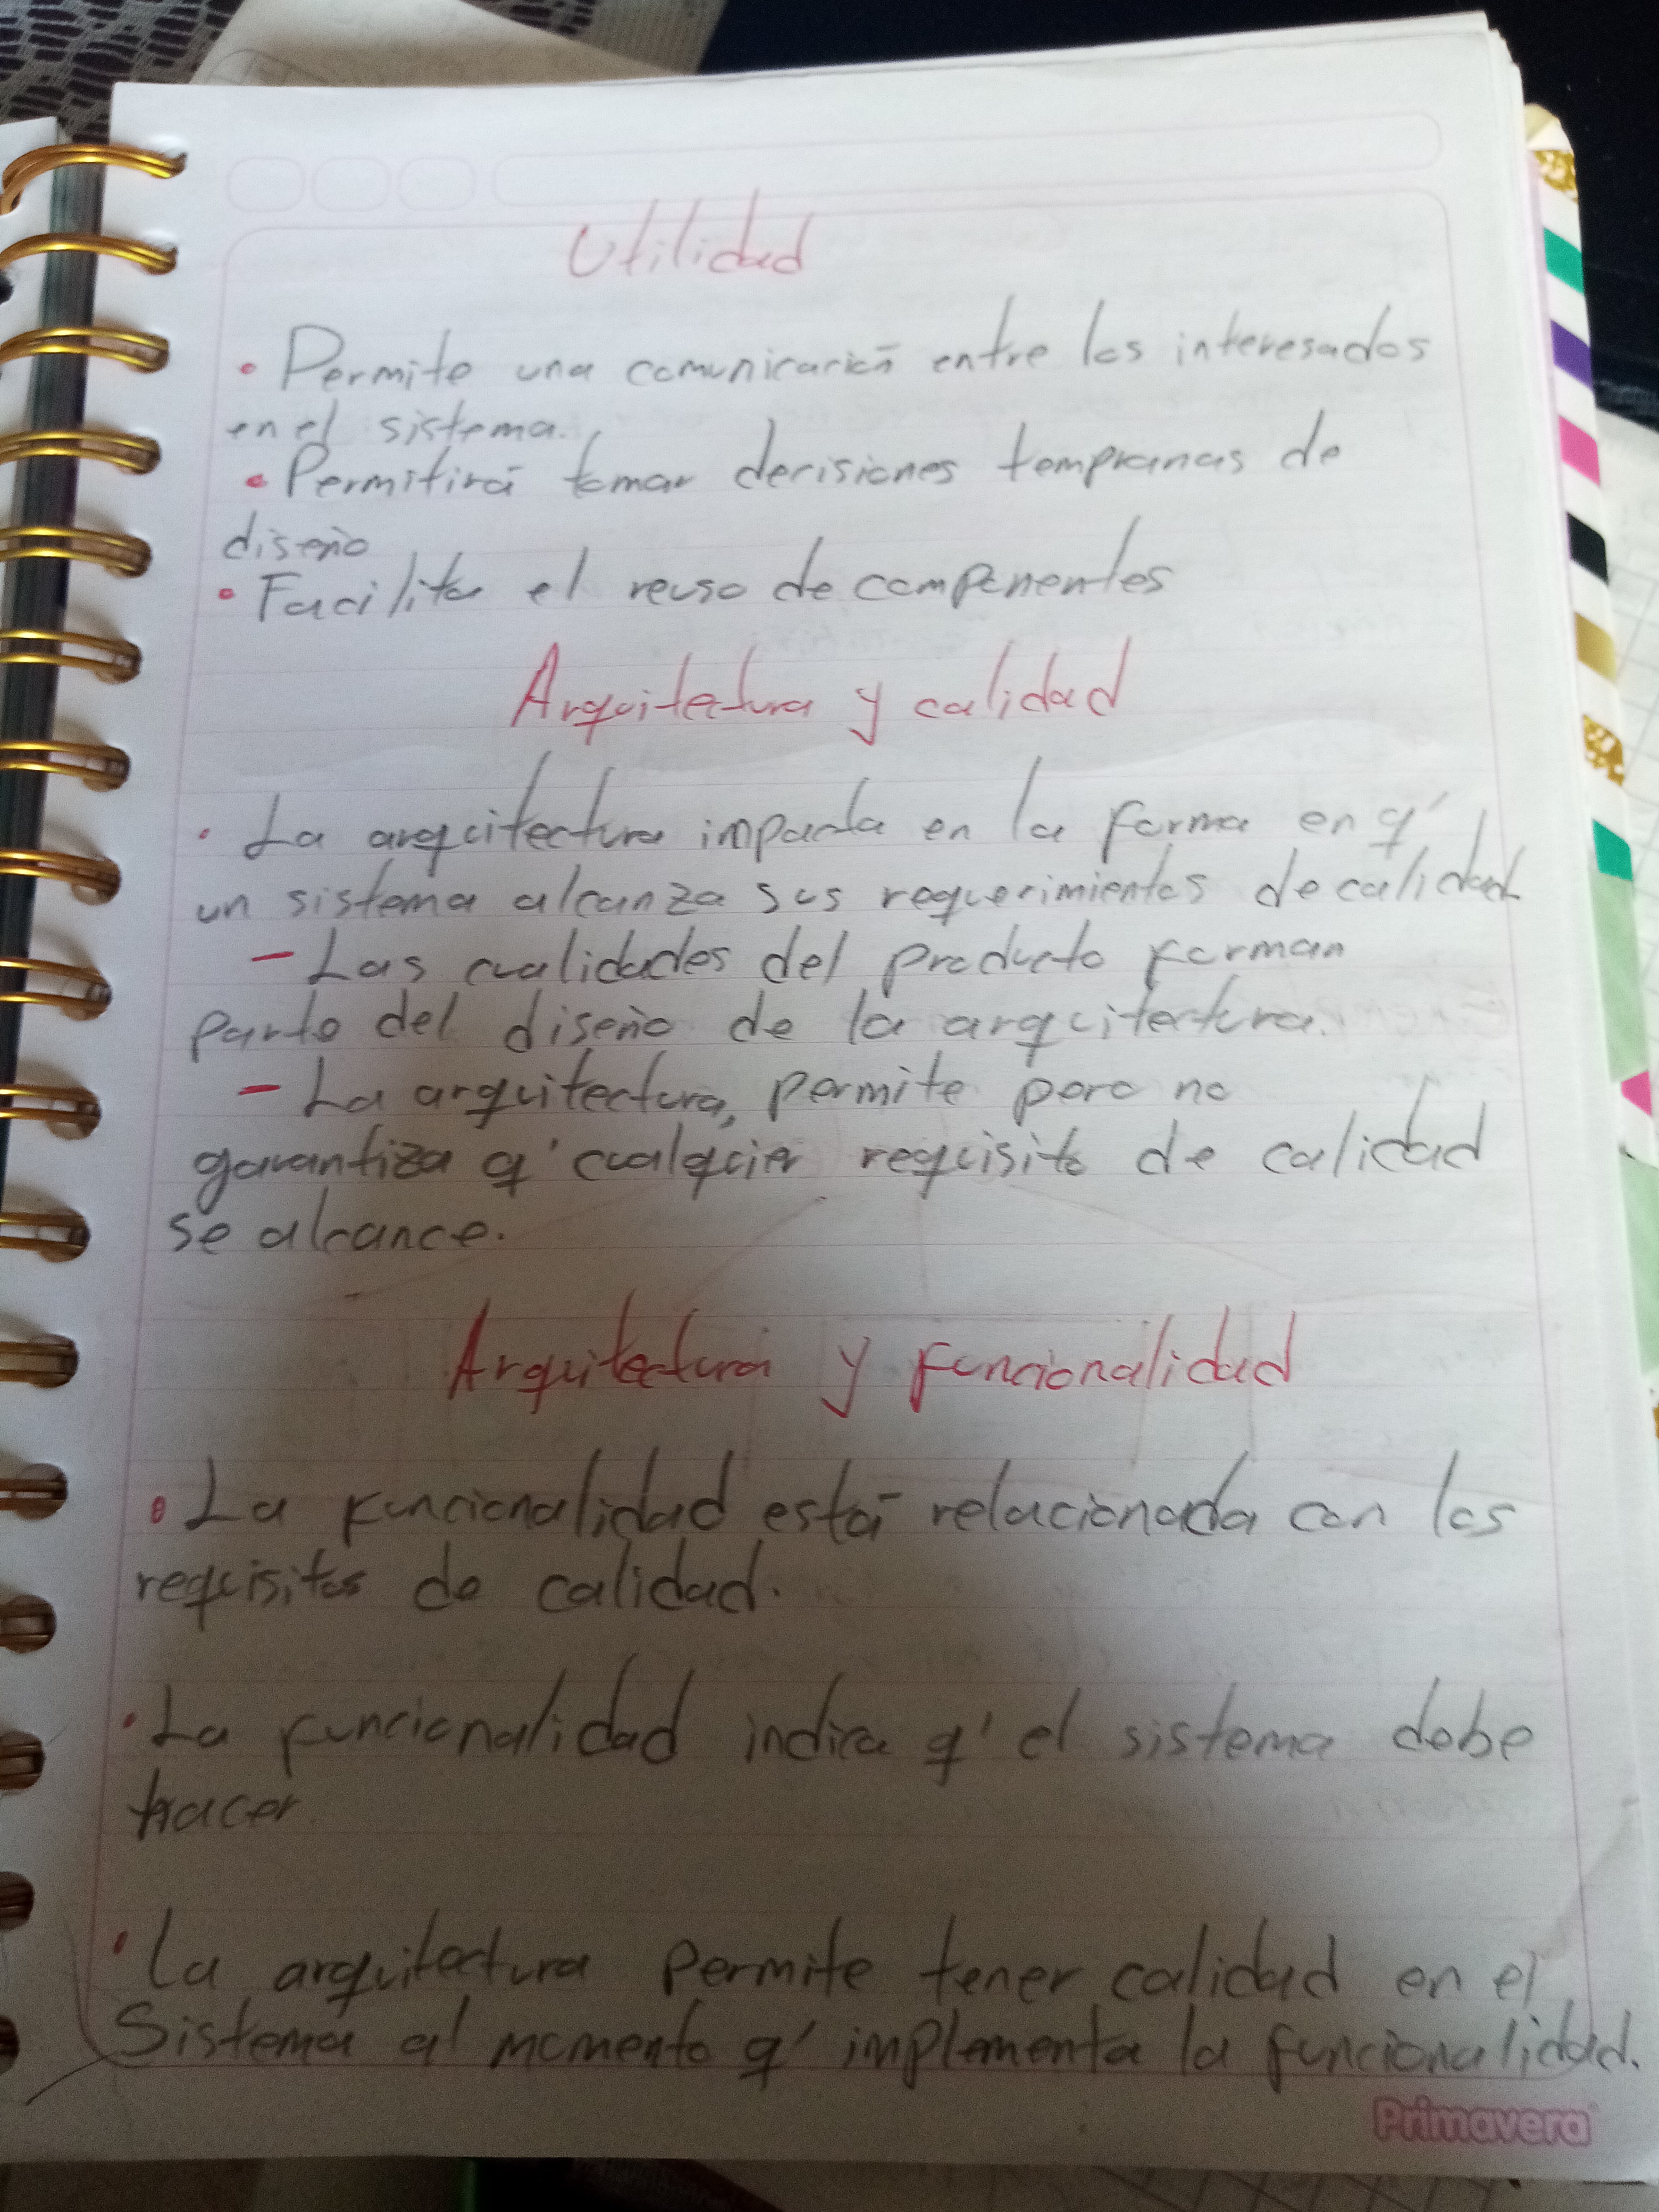 Utilidad
• Permite una comunicación entre los interesados
en el sistema.
• Permitirá tomar decisiones tempranas de
diseño
• Facilita el reuso de componentes
Arquitectura y calidad
• La arquitectura impacta en la forma en q'
un sistema alcanza sus requerimientos de calidad
- Las cualidades del producto forman
parte del diseño de la arquitectura.
- La arquitectura, permite pero no
garantiza q' cualquier requisito de calidad
se alcance.
Arquitectura y funcionalidad
• La funcionalidad está relacionada con los
requisitos de calidad.
• La funcionalidad indica q' el sistema debe
hacer.
• La arquitectura permite tener calidad en el
Sistema al momento q' implementa la funcionalidad.
Primavera